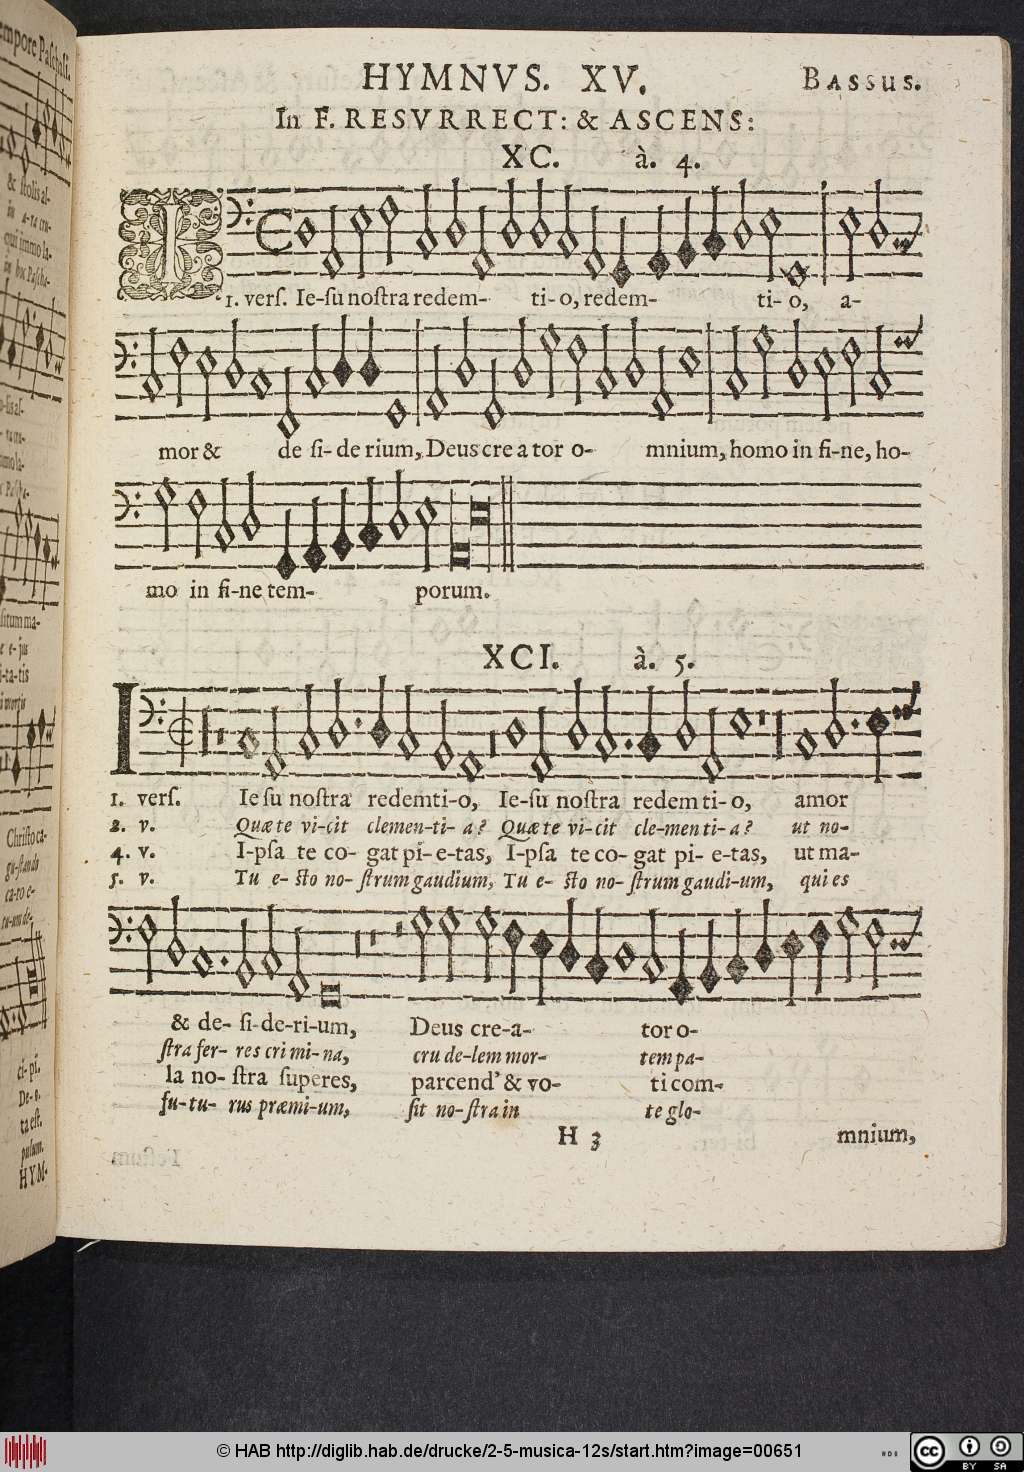 HYMNVS. XV.
BASSUS.
In F. RESVRRECT: & ASCENS:
XC. à. 4.
I
1. verſ. Ie-ſu noſtra redem- ti-o, redem- ti- o, a-
mor & de ſi- de rium, Deus cre a tor o- mnium, homo in fi-ne, ho-
mo in fi-ne tem- porum.
XCI. à. 5.
I
1. verſ. Ie ſu noſtra redemti-o, Ie-ſu noſtra redem ti- o, amor
2. v. Quæ te vi-cit clemen-ti- a? Quæ te vi-cit cle-men ti- a? ut no-
4. v. I-pſa te co- gat pi- e-tas, I-pſa te co- gat pi- e-tas, ut ma-
5. v. Tu e- ſto no- ſtrum gaudium, Tu e- ſto no- ſtrum gaudi-um, qui es
& de- ſi-de-ri-um, Deus cre-a- tor o-
ſtra fer- res cri mi- na, cru de-lem mor- tem pa-
la no- ſtra ſuperes, parcend' & vo- ti com-
fu-tu- rus præmi-um, ſit no-ſtra in te glo-
H 3
mnium,
© HAB http://diglib.hab.de/drucke/2-5-musica-12s/start.htm?image=00651
cc BY SA